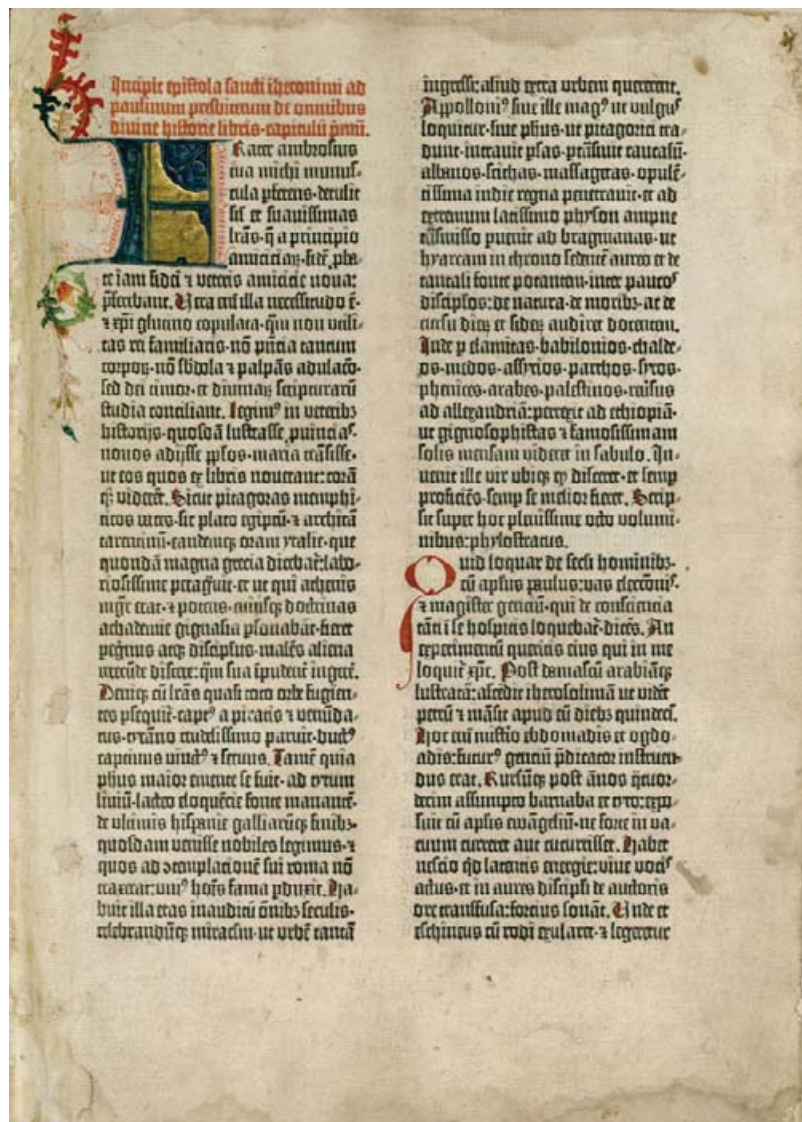 Incipit epistola sancti iheronimi ad
paulinum presbiterum de omnibus
divine historie libris·capitulū pmū.
Frater ambrosius
tua michi munus-
cula pferens·detulit
sil et suavissimas
lrās·q̄ a principio
amiciciaꝝ·fidē pba-
te iam fidei ⁊ veteris amicicie nova:
pferebant. Vera eni illa necessitudo ē·
⁊ xpi glutino copulata·qm non utili-
tas rei familiaris·nō pñcia tantum
corpoꝝ·nō sbdola ⁊ palpās adulaco·
sed dei timor·et divinaꝝ scripturarū
studia conciliant. Legimꝰ in veteribꝫ
historijs·quosdā lustrasse puincias·
novos adijsse pplos·maria trāsisse·
ut eos quos ex libris noverant: corā
qꝫ viderēt. Sicut pitagoras memphi-
ticos vates·sic plato egiptū·⁊ architā
tarentinū·eandemqꝫ oram ytalie·que
quondā magna grecia dicebat̄: labo-
riosissime pagvit·et ut qui athenis
mgr̄ erat·⁊ potens·cuiusqꝫ doctrinas
achademie gignasia psonabāt·fieret
pegrinus atqꝫ discipulus·malēs aliena
verecūde discere: qm sua īpudent ingere.
Deniqꝫ cū lrās quasi toto orbe fugien-
tes psequit̄·captꝰ a piratis ⁊ venūda-
tus·tyrāno crudelissimo paruit·ductꝰ
captivus vinctꝰ ⁊ servus. Tamē quia
phus maior emente se fuit·ad tytum
liviū·lacteo eloquēcie fonte manantē·
de ultimis hispanie galliarūqꝫ finibꝫ·
quosdam venisse nobiles legimus·⁊
quos ad ɔtemplacionē sui roma nō
traxerat: uniꝰ hoīs fama pduxit. Ha-
buit illa etas inauditū ōnibꝫ seculis·
celebrandūqꝫ miraclm·ut urbē tantā
ingressi: aliud extra urbem quererent.
Appolloniꝰ sive ille magꝰ ut vulgus
loquitur·sive phus·ut pitagorici tra-
dunt·intravit psas·ptrāsivit caucasū·
albanos·scithas·massagetas·opulē-
tissima indie regna penetravit·et ad
extremum latissimo physon ampne
trāsmisso pvenit ad bragmanas·ut
hyarcam in throno sedentē aureo et de
tantali fonte potantem·inter paucos
discipulos: de natura·de moribꝫ·ac de
cursu dieꝝ et sideꝝ audiret docentem.
Inde p elamitas·babilonios·chalde-
os·medos·assyrios·parthos·syros·
phenices·arabes·palestinos·reūsus
ad allexandriā: perrexit ad ethiopiā·
ut gignosophistas ⁊ famosissimam
solis mensam videret in sabulo. In-
venit ille vir ubiqꝫ qd disceret·et semp
proficiēs·semp se melior fieret. Scrip-
sit super hoc plenissime octo volumi-
nibus: phylostratus.
Quid loquar de secli hominibꝫ·
cū aplus paulus: vas electōnis·
⁊ magister genciū·qui de consciencia
tāti ī se hospitis loquebat̄·dicēs. An
experimentū queritis eius qui in me
loquit̄ xpc. Post damascū arabiāqꝫ
lustratā: ascēdit iherosolimā ut vidēt
petrū ⁊ māsit apud eū diebꝫ quindeci.
Hoc eni misterio ebdomadis et ogdo-
adis: futurꝰ genciū pdicator instruen-
dus erat. Rursūqꝫ post ānos q̄tuor-
decim assumpto barnaba et tyto: expo-
suit cū aplis ewāgeliū·ne forte in va-
cuum curreret aut cucurrisset. Habet
nescio qd latentis energie: vive vocis
actus·et in aures discipli de auctoris
ore transfusa: forcius sonāt. Unde et
eschineus cū rodi exularet·⁊ legeretur